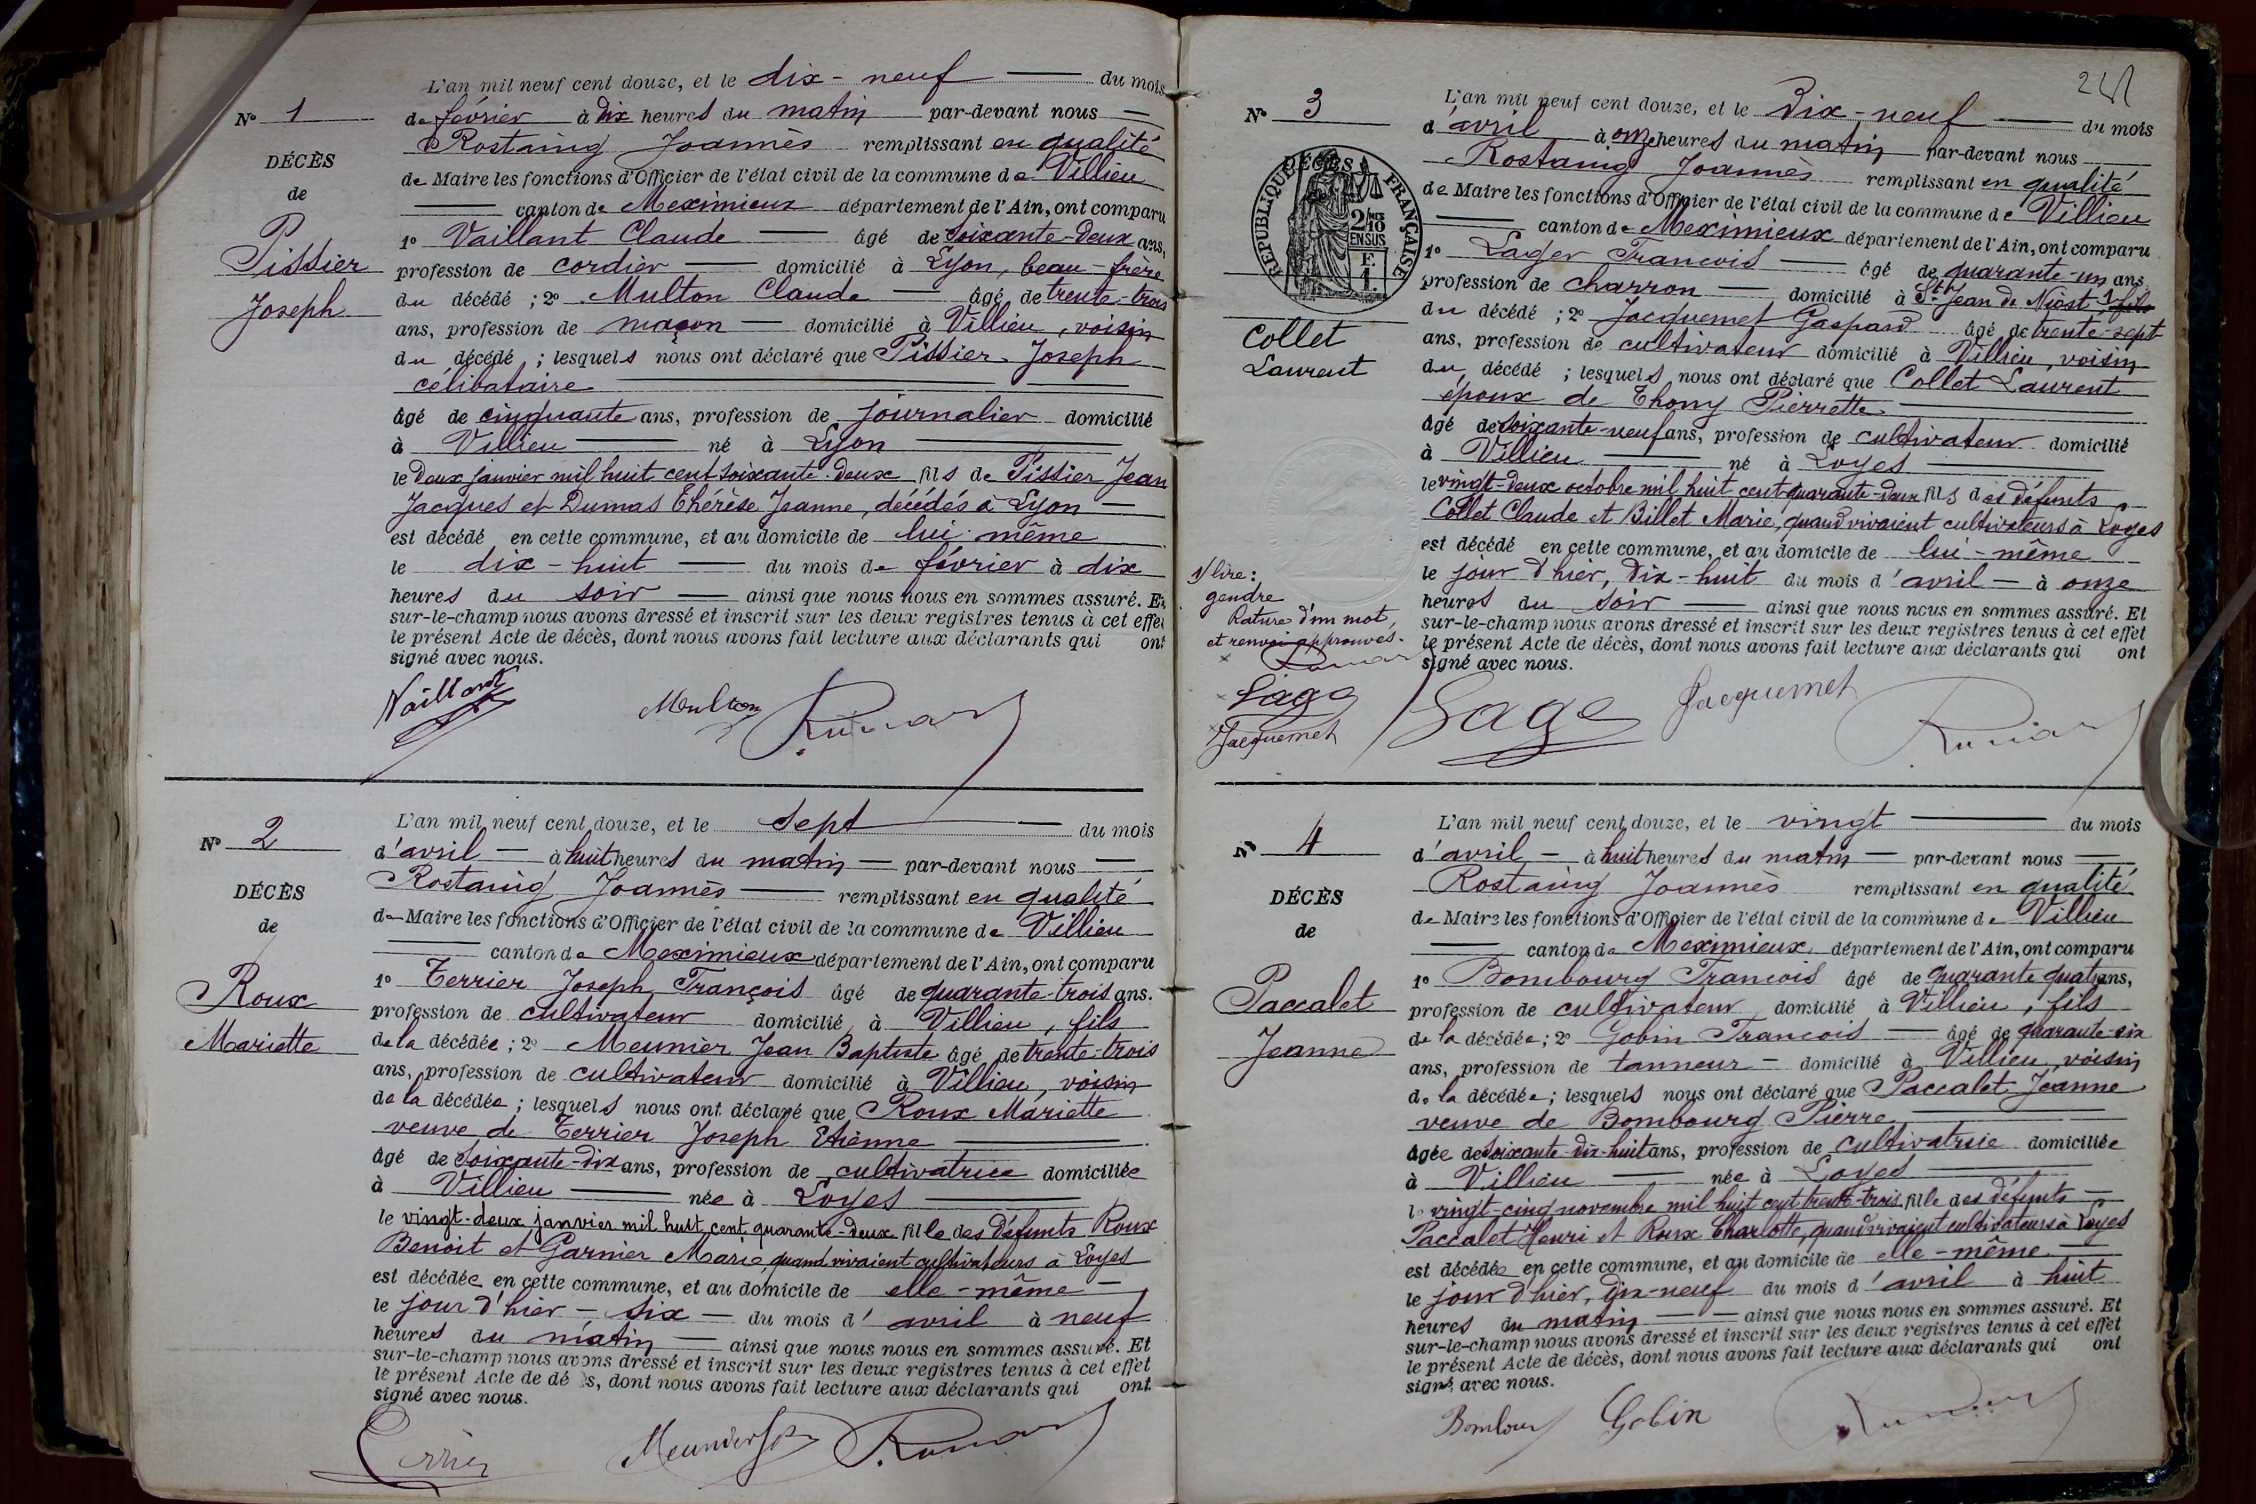 L'an mil neuf cent douze, et le dix-neuf du mois
N° 1
de février à dix heures du matin par-devant nous
Rostaing Joannès remplissant en qualité
DÉCÈS
de Maire les fonctions d'Officier de l'état civil de la commune de Villieu
de
canton de Meximieux département de l'Ain, ont comparu
1° Vaillant Claude âgé de soixante-deux ans,
Pissier
profession de cordier domicilié à Lyon, beau-frère
Joseph
du décédé ; 2° Multon Claude âgé de trente-trois
ans, profession de maçon domicilié à Villieu, voisin
du décédé ; lesquels nous ont déclaré que Pissier Joseph
célibataire
âgé de cinquante ans, profession de journalier domicilié
à Villieu né à Lyon
le deux janvier mil huit cent soixante-deux fils de Pissier Jean
Jacques et Dumas Thérèse Jeanne, décédés à Lyon
est décédé en cette commune, et au domicile de lui même
le dix-huit du mois de février à dix
heures du soir ainsi que nous nous en sommes assuré. Et
sur-le-champ nous avons dressé et inscrit sur les deux registres tenus à cet effet
le présent Acte de décès, dont nous avons fait lecture aux déclarants qui ont
signé avec nous.
Vaillant Multon
L'an mil neuf cent douze, et le sept du mois
N° 2
d'avril à huit heures du matin par-devant nous
Rostaing Joannès remplissant en qualité
DÉCÈS
de Maire les fonctions d'Officier de l'état civil de la commune de Villieu
de
canton de Meximieux département de l'Ain, ont comparu
1° Terrier Joseph François âgé de quarante-trois ans.
Roux
profession de cultivateur domicilié à Villieu, fils
Mariette
de la décédée ; 2° Meunier Jean Baptiste âgé de trente-trois
ans, profession de cultivateur domicilié à Villieu, voisin
de la décédée ; lesquels nous ont déclaré que Roux Mariette
veuve de Terrier Joseph Etienne
âgé de soixante-dix ans, profession de cultivatrice domiciliée
à Villieu née à Loyes
le vingt-deux janvier mil huit cent quarante-deux fille des défunts Roux
Benoit et Garnier Marie, quand vivaient cultivateurs à Loyes
est décédée en cette commune, et au domicile de elle-même
le jour d'hier - six - du mois d'avril à neuf
heures du matin ainsi que nous nous en sommes assuré. Et
sur-le-champ nous avons dressé et inscrit sur les deux registres tenus à cet effet
le présent Acte de décès, dont nous avons fait lecture aux déclarants qui ont
signé avec nous.
Terrier Meunier
L'an mil neuf cent douze, et le Dix-neuf du mois
N° 3
d'avril à onze heures du matin par-devant nous
Rostaing Joannès remplissant en qualité
DÉCÈS
RÉPUBLIQUE FRANÇAISE
2/10
EN SUS
F.
1.
de Maire les fonctions d'Officier de l'état civil de la commune de Villieu
canton de Meximieux département de l'Ain, ont comparu
1° Lager Francois âgé de quarante-un ans
profession de charron domicilié à St Jean de Niost 1 fils
du décédé ; 2° Jacquemet Gaspard âgé de trente-sept
Collet
ans, profession de cultivateur domicilié à Villieu, voisin
Laurent
du décédé ; lesquels nous ont déclaré que Collet Laurent
époux de Thony Pierrette
âgé de soixante-neuf ans, profession de cultivateur domicilié
à Villieu né à Loyes
le vingt-deux octobre mil huit cent quarante-deux fils des défunts
Collet Claude et Billet Marie, quand vivaient cultivateurs à Loyes
est décédé en cette commune, et au domicile de lui-même
le jour d'hier, dix-huit du mois d'avril à onze
heures du soir ainsi que nous nous en sommes assuré. Et
sur-le-champ nous avons dressé et inscrit sur les deux registres tenus à cet effet
le présent Acte de décès, dont nous avons fait lecture aux déclarants qui ont
signé avec nous.
1/ lire :
gendre
Rature d'un mot,
et renvoi approuvés.
Jacquemet
Jacquemet
L'an mil neuf cent douze, et le vingt du mois
N° 4
d'avril à huit heures du matin par-devant nous
Rostaing Joannès remplissant en qualité
DÉCÈS
de Maire les fonctions d'Officier de l'état civil de la commune de Villieu
de
canton de Meximieux département de l'Ain, ont comparu
1° Bombourg Francois âgé de quarante quatre ans,
Paccalet
profession de cultivateur domicilié à Villieu, fils
Jeanne
de la décédée ; 2° Gobin Francois âgé de quarante-six
ans, profession de tanneur domicilié à Villieu, voisin
de la décédée ; lesquels nous ont déclaré que Paccalet Jeanne
veuve de Bombourg Pierre
âgée de soixante-dix-huit ans, profession de cultivatrice domiciliée
à Villieu née à Loyes
le vingt-cinq novembre mil huit cent trente-trois fille des défunts
Paccalet Henri et Roux Charlotte, quand vivaient cultivateurs à Loyes
est décédée en cette commune, et au domicile de elle-même
le jour d'hier, dix-neuf du mois d'avril à huit
heures du matin ainsi que nous nous en sommes assuré. Et
sur-le-champ nous avons dressé et inscrit sur les deux registres tenus à cet effet
le présent Acte de décès, dont nous avons fait lecture aux déclarants qui ont
signé avec nous.
Bombourg Gobin